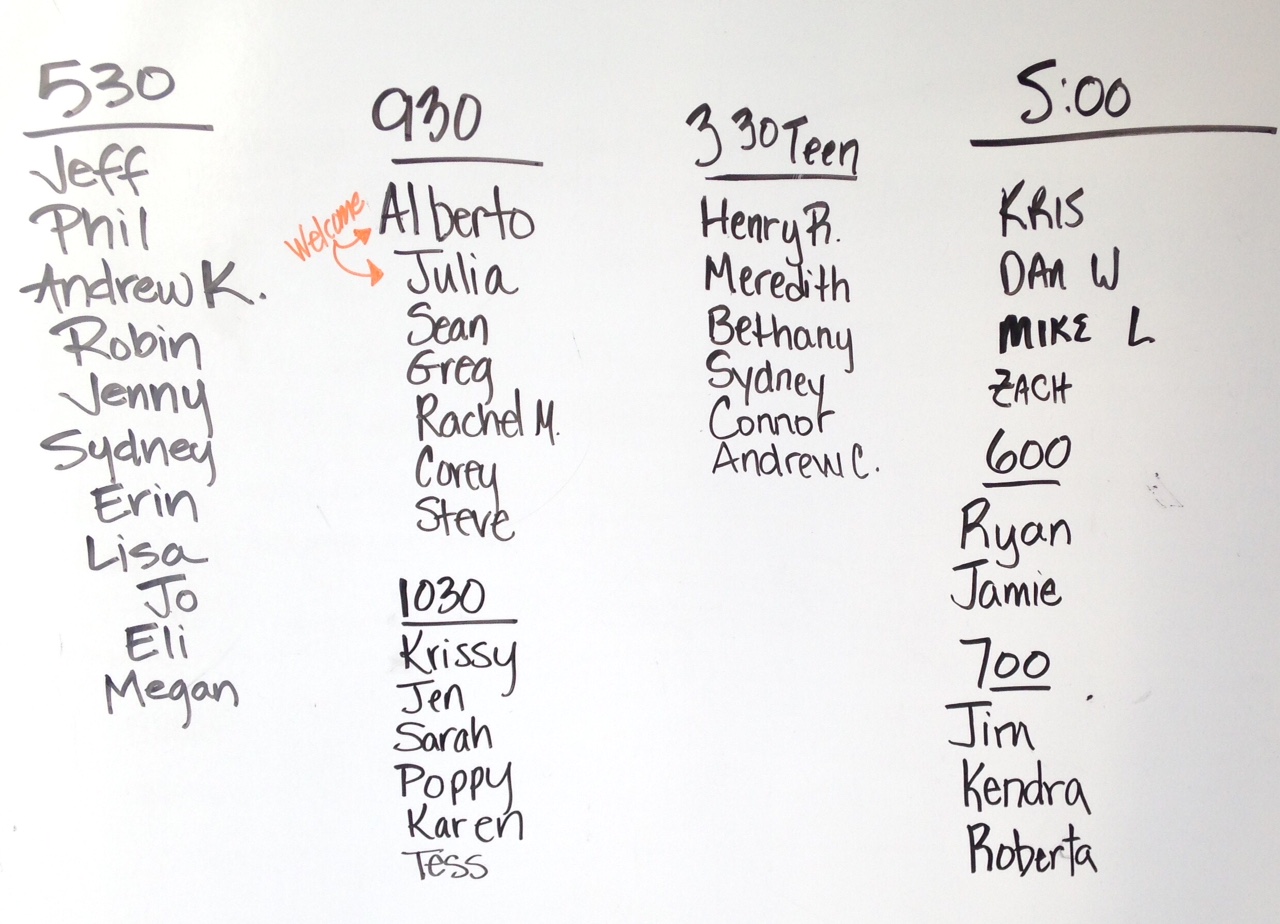 530
Jeff
Phil
Andrew K.
Robin
Jenny
Sydney
Erin
Lisa
Jo
Eli
Megan
930
Welcome
Alberto
Julia
Sean
Greg
Rachel M.
Corey
Steve
1030
Krissy
Jen
Sarah
Poppy
Karen
Tess
3 30 Teen
Henry R.
Meredith
Bethany
Sydney
Connor
Andrew C.
5:00
KRIS
DAN W
MIKE L
ZACH
600
Ryan
Jamie
700
Jim
Kendra
Roberta